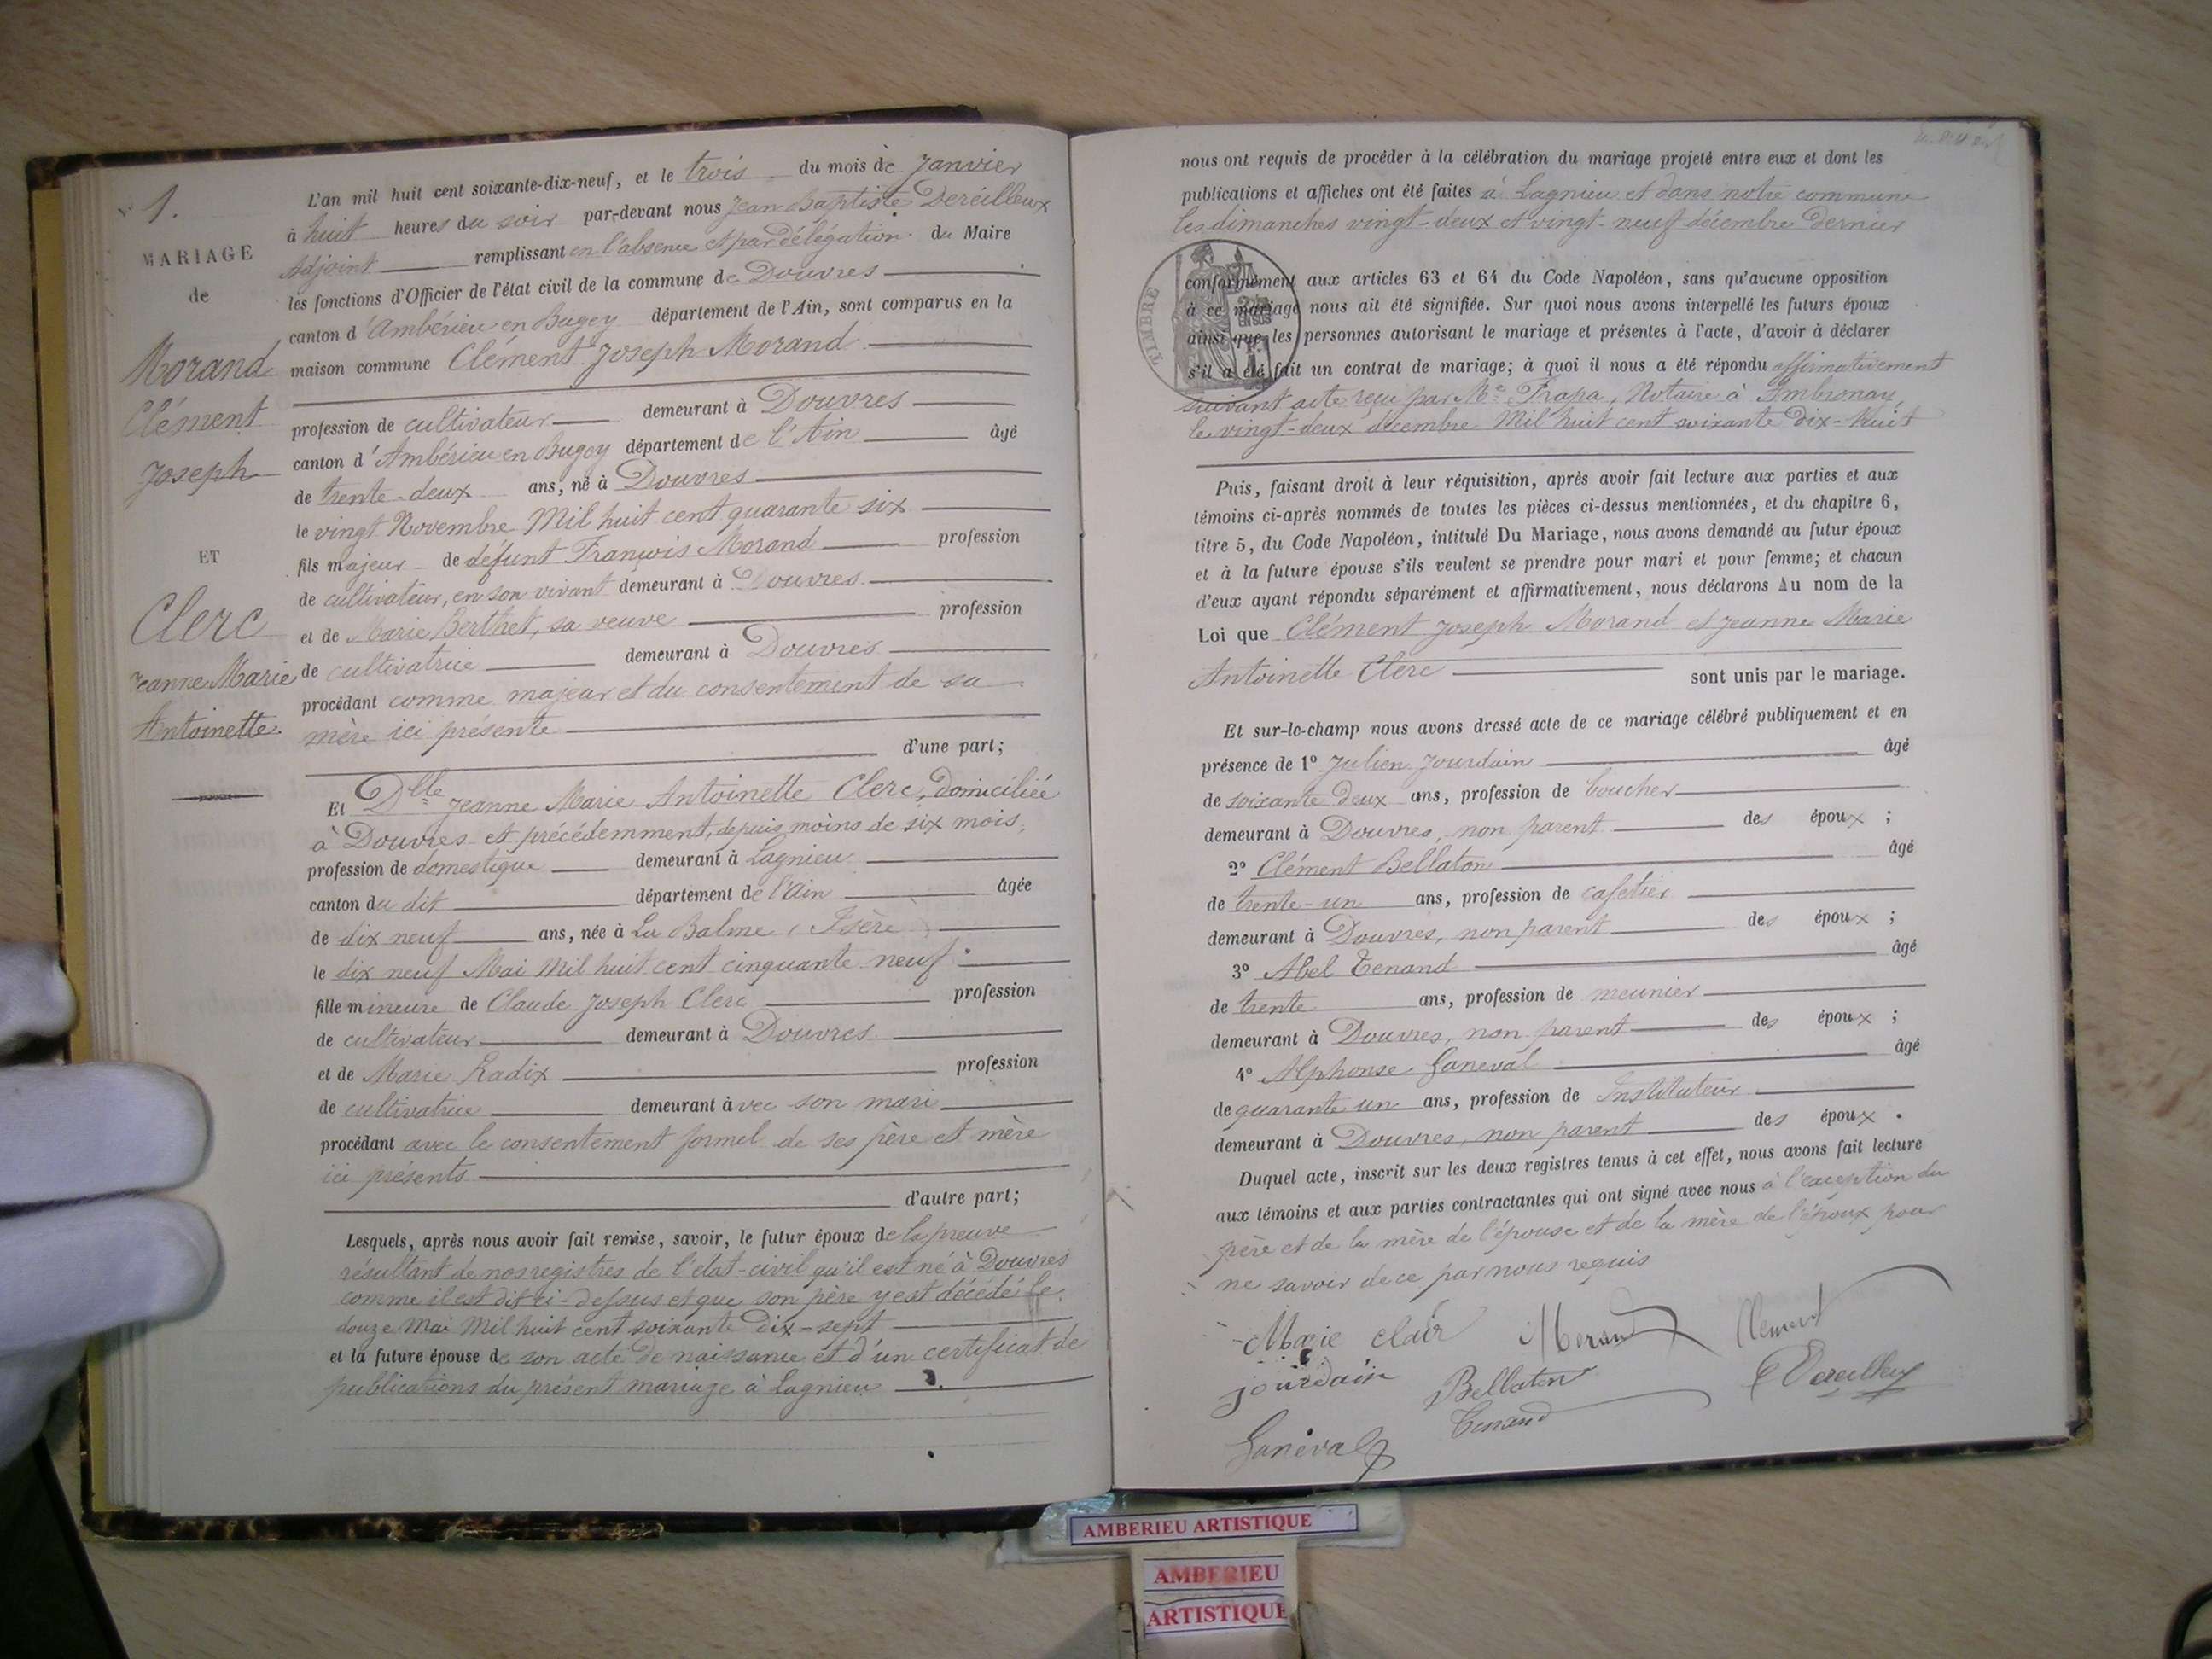 N° 1.
MARIAGE
de
Morand
Clément
Joseph
ET
Clerc
Jeanne Marie
Antoinette
L'an mil huit cent soixante-dix-neuf, et le trois du mois de Janvier
à huit heures du soir par-devant nous Jean Baptiste Dereilleux
Adjoint remplissant en l'absence et par délégation du Maire
les fonctions d'Officier de l'état civil de la commune de Douvres
canton d'Ambérieu en Bugey département de l'Ain, sont comparus en la
maison commune Clément Joseph Morand
profession de cultivateur demeurant à Douvres
canton d'Ambérieu en Bugey département de l'Ain âgé
de trente-deux ans, né à Douvres
le vingt Novembre Mil huit cent quarante six
fils majeur de défunt François Morand profession
de cultivateur, en son vivant demeurant à Douvres
et de Marie Berthet, sa veuve profession
de cultivatrice demeurant à Douvres
procédant comme majeur et du consentement de sa
mère ici présente
d'une part;
Et Dlle Jeanne Marie Antoinette Clerc, domiciliée
à Douvres et précédemment, depuis moins de six mois,
profession de domestique demeurant à Lagnieu
canton du dit département de l'Ain âgée
de dix neuf ans, née à La Balme (Isère)
le dix neuf Mai Mil huit cent cinquante neuf
fille mineure de Claude Joseph Clerc profession
de cultivateur demeurant à Douvres
et de Marie Radix profession
de cultivatrice demeurant avec son mari
procédant avec le consentement formel de ses père et mère
ici présents
d'autre part;
Lesquels, après nous avoir fait remise, savoir, le futur époux de la preuve
résultant de nos registres de l'état-civil qu'il est né à Douvres
comme il est dit ci-dessus et que son père y est décédé le
douze Mai Mil huit cent soixante dix-sept
et la future épouse de son acte de naissance et d'un certificat de
publications du présent mariage à Lagnieu
nous ont requis de procéder à la célébration du mariage projeté entre eux et dont les
publications et affiches ont été faites à Lagnieu et dans notre commune
les dimanches vingt-deux et vingt-neuf décembre dernier
TIMBRE
conformément aux articles 63 et 64 du Code Napoléon, sans qu'aucune opposition
à ce mariage nous ait été signifiée. Sur quoi nous avons interpellé les futurs époux
ainsi que les personnes autorisant le mariage et présentes à l'acte, d'avoir à déclarer
s'il a été fait un contrat de mariage; à quoi il nous a été répondu affirmativement
suivant acte reçu par Me Frapa, Notaire à Ambronay,
le vingt-deux décembre Mil huit cent soixante Dix-Huit
Puis, faisant droit à leur réquisition, après avoir fait lecture aux parties et aux
témoins ci-après nommés de toutes les pièces ci-dessus mentionnées, et du chapitre 6,
titre 5, du Code Napoléon, intitulé Du Mariage, nous avons demandé au futur époux
et à la future épouse s'ils veulent se prendre pour mari et pour femme; et chacun
d'eux ayant répondu séparément et affirmativement, nous déclarons Au nom de la
Loi que Clément Joseph Morand et Jeanne Marie
Antoinette Clerc sont unis par le mariage.
Et sur-le-champ nous avons dressé acte de ce mariage célébré publiquement et en
présence de 1° Julien Jourdain âgé
de soixante deux ans, profession de boucher
demeurant à Douvres, non parent des époux ;
2° Clément Bellaton âgé
de trente-un ans, profession de cafetier
demeurant à Douvres, non parent des époux ;
3° Abel Tenand âgé
de trente ans, profession de meunier
demeurant à Douvres, non parent des époux ;
4° Alphonse Ganeval âgé
de quarante un ans, profession de Instituteur
demeurant à Douvres, non parent des époux .
Duquel acte, inscrit sur les deux registres tenus à cet effet, nous avons fait lecture
aux témoins et aux parties contractantes qui ont signé avec nous à l'exception du
père et de la mère de l'épouse et de la mère de l'époux pour
ne savoir de ce par nous requis
Marie clair Morand Clement
jourdain Bellaton Dereilleux
Tenand
Ganeval
AMBERIEU ARTISTIQUE
AMBERIEU
ARTISTIQUE